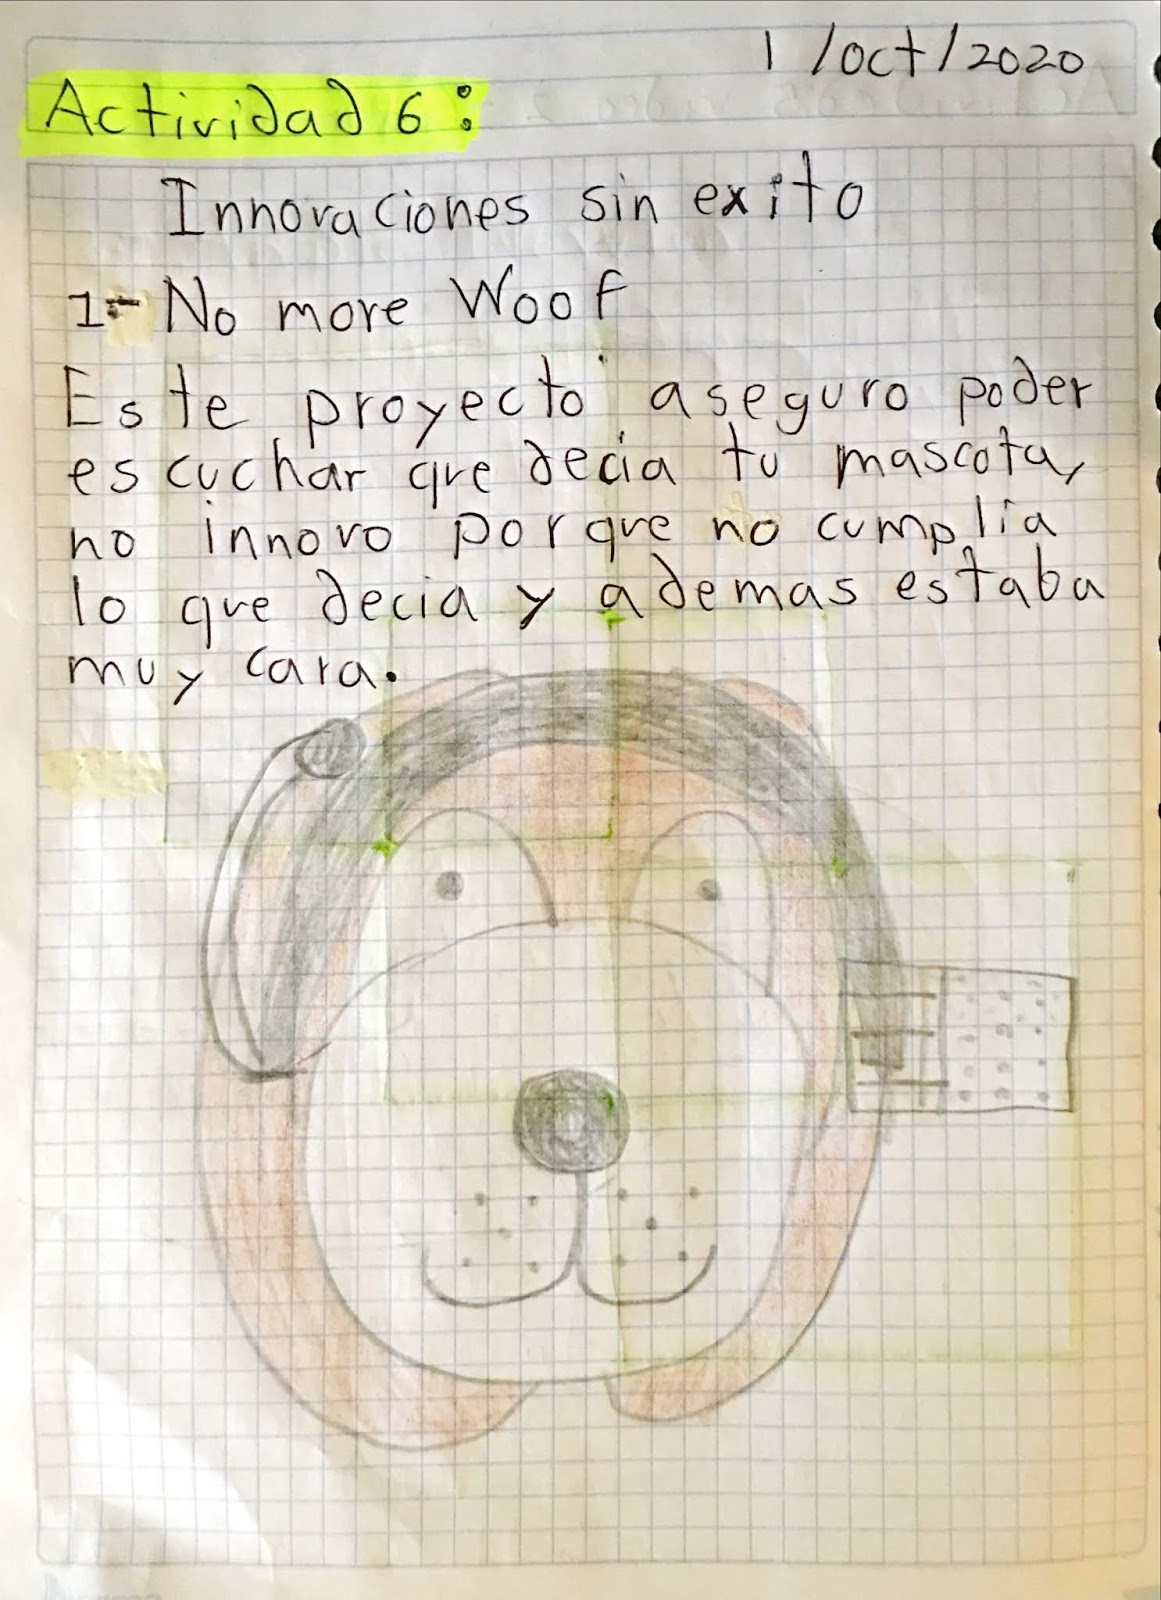 1/oct/2020
Actividad 6:
Innovaciones sin exito
1- No more Woof
Este proyecto aseguro poder
escuchar que decia tu mascota,
no innovo porque no cumplia
lo que decia y ademas estaba
muy cara.